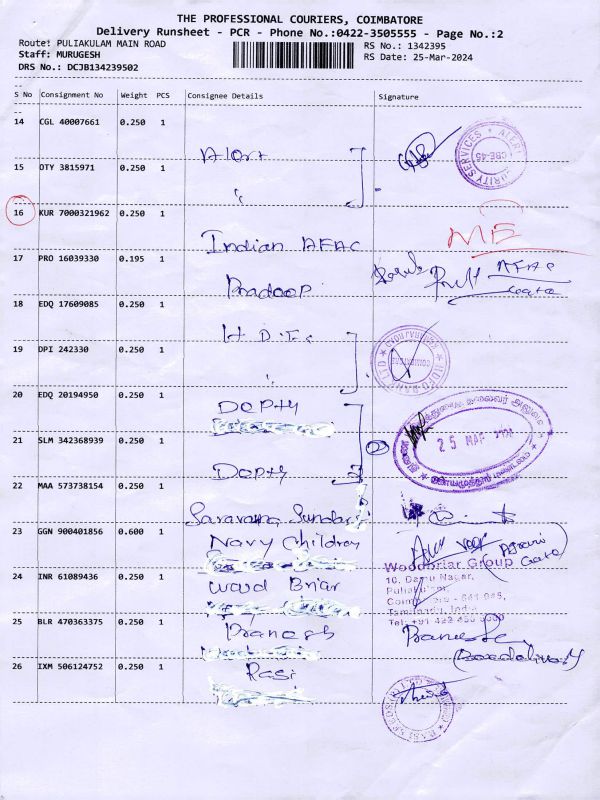 THE PROFESSIONAL COURIERS, COIMBATORE
Delivery Runsheet - PCR - Phone No.:0422-3505555 - Page No.:2
Route: PULIAKULAM MAIN ROAD
RS No.: 1342395
Staff: MURUGESH
RS Date: 25-Mar-2024
DRS No.: DCJB134239502
S No Consignment No Weight PCS Consignee Details Signature
14 CGL 40007661 0.250 1
Alert
SECURITY SERVICES * ALERT CBE-45
15 OTY 3815971 0.250 1
"
16 KUR 7000321962 0.250 1
Indian AFAC
ME
17 PRO 16039330 0.195 1
Pradeep
AFAC
Gate
18 EDQ 17609085 0.250 1
H.D.F.C
19 DPI 242330 0.250 1
"
20 EDQ 20194950 0.250 1
DEPTY
25 MAR
21 SLM 342368939 0.250 1
DEPTY
2
22 MAA 573738154 0.250 1
Saravana Sundar
23 GGN 900401856 0.600 1
Navy Children
Gate
24 INR 61089436 0.250 1
Wood Briar
Woodbriar Group
10, Damu Nagar,
Puliakulam,
Coimbatore - 641 045,
Tamilnadu, India
Tel: +91 422
25 BLR 470363375 0.250 1
Pranesh
Pranesh
26 IXM 506124752 0.250 1
Rasi